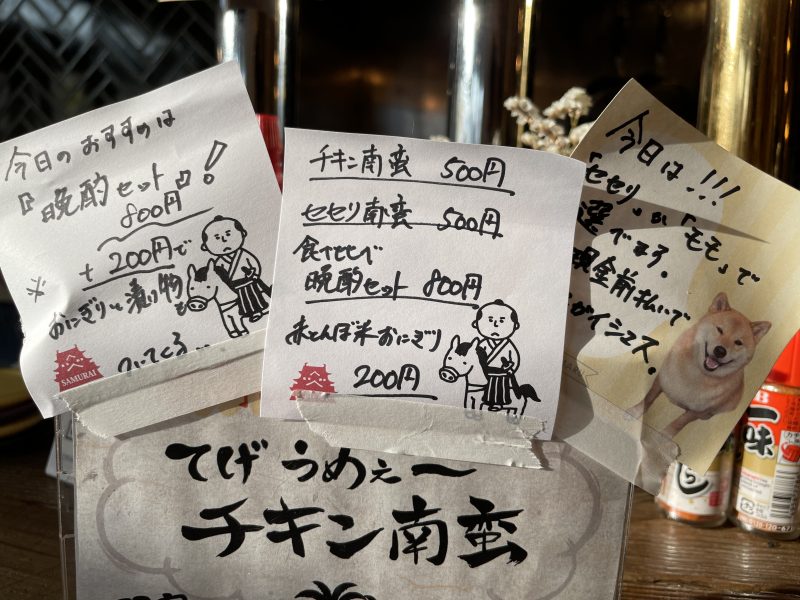 今日のおすすめは
『晩酌セット』！
800円
+200円で
※
おにぎりと漬け物も
ついてくる…
SAMURAI
チキン南蛮 500円
セセリ南蛮 500円
食べくらべ
晩酌セット 800円
赤とんぼ米おにぎり
200円
今日は!!!
「セセリ」か「モモ」で
選べます。
現金前払いで
イシマス。
てげうめぇ～
チキン南蛮
一味